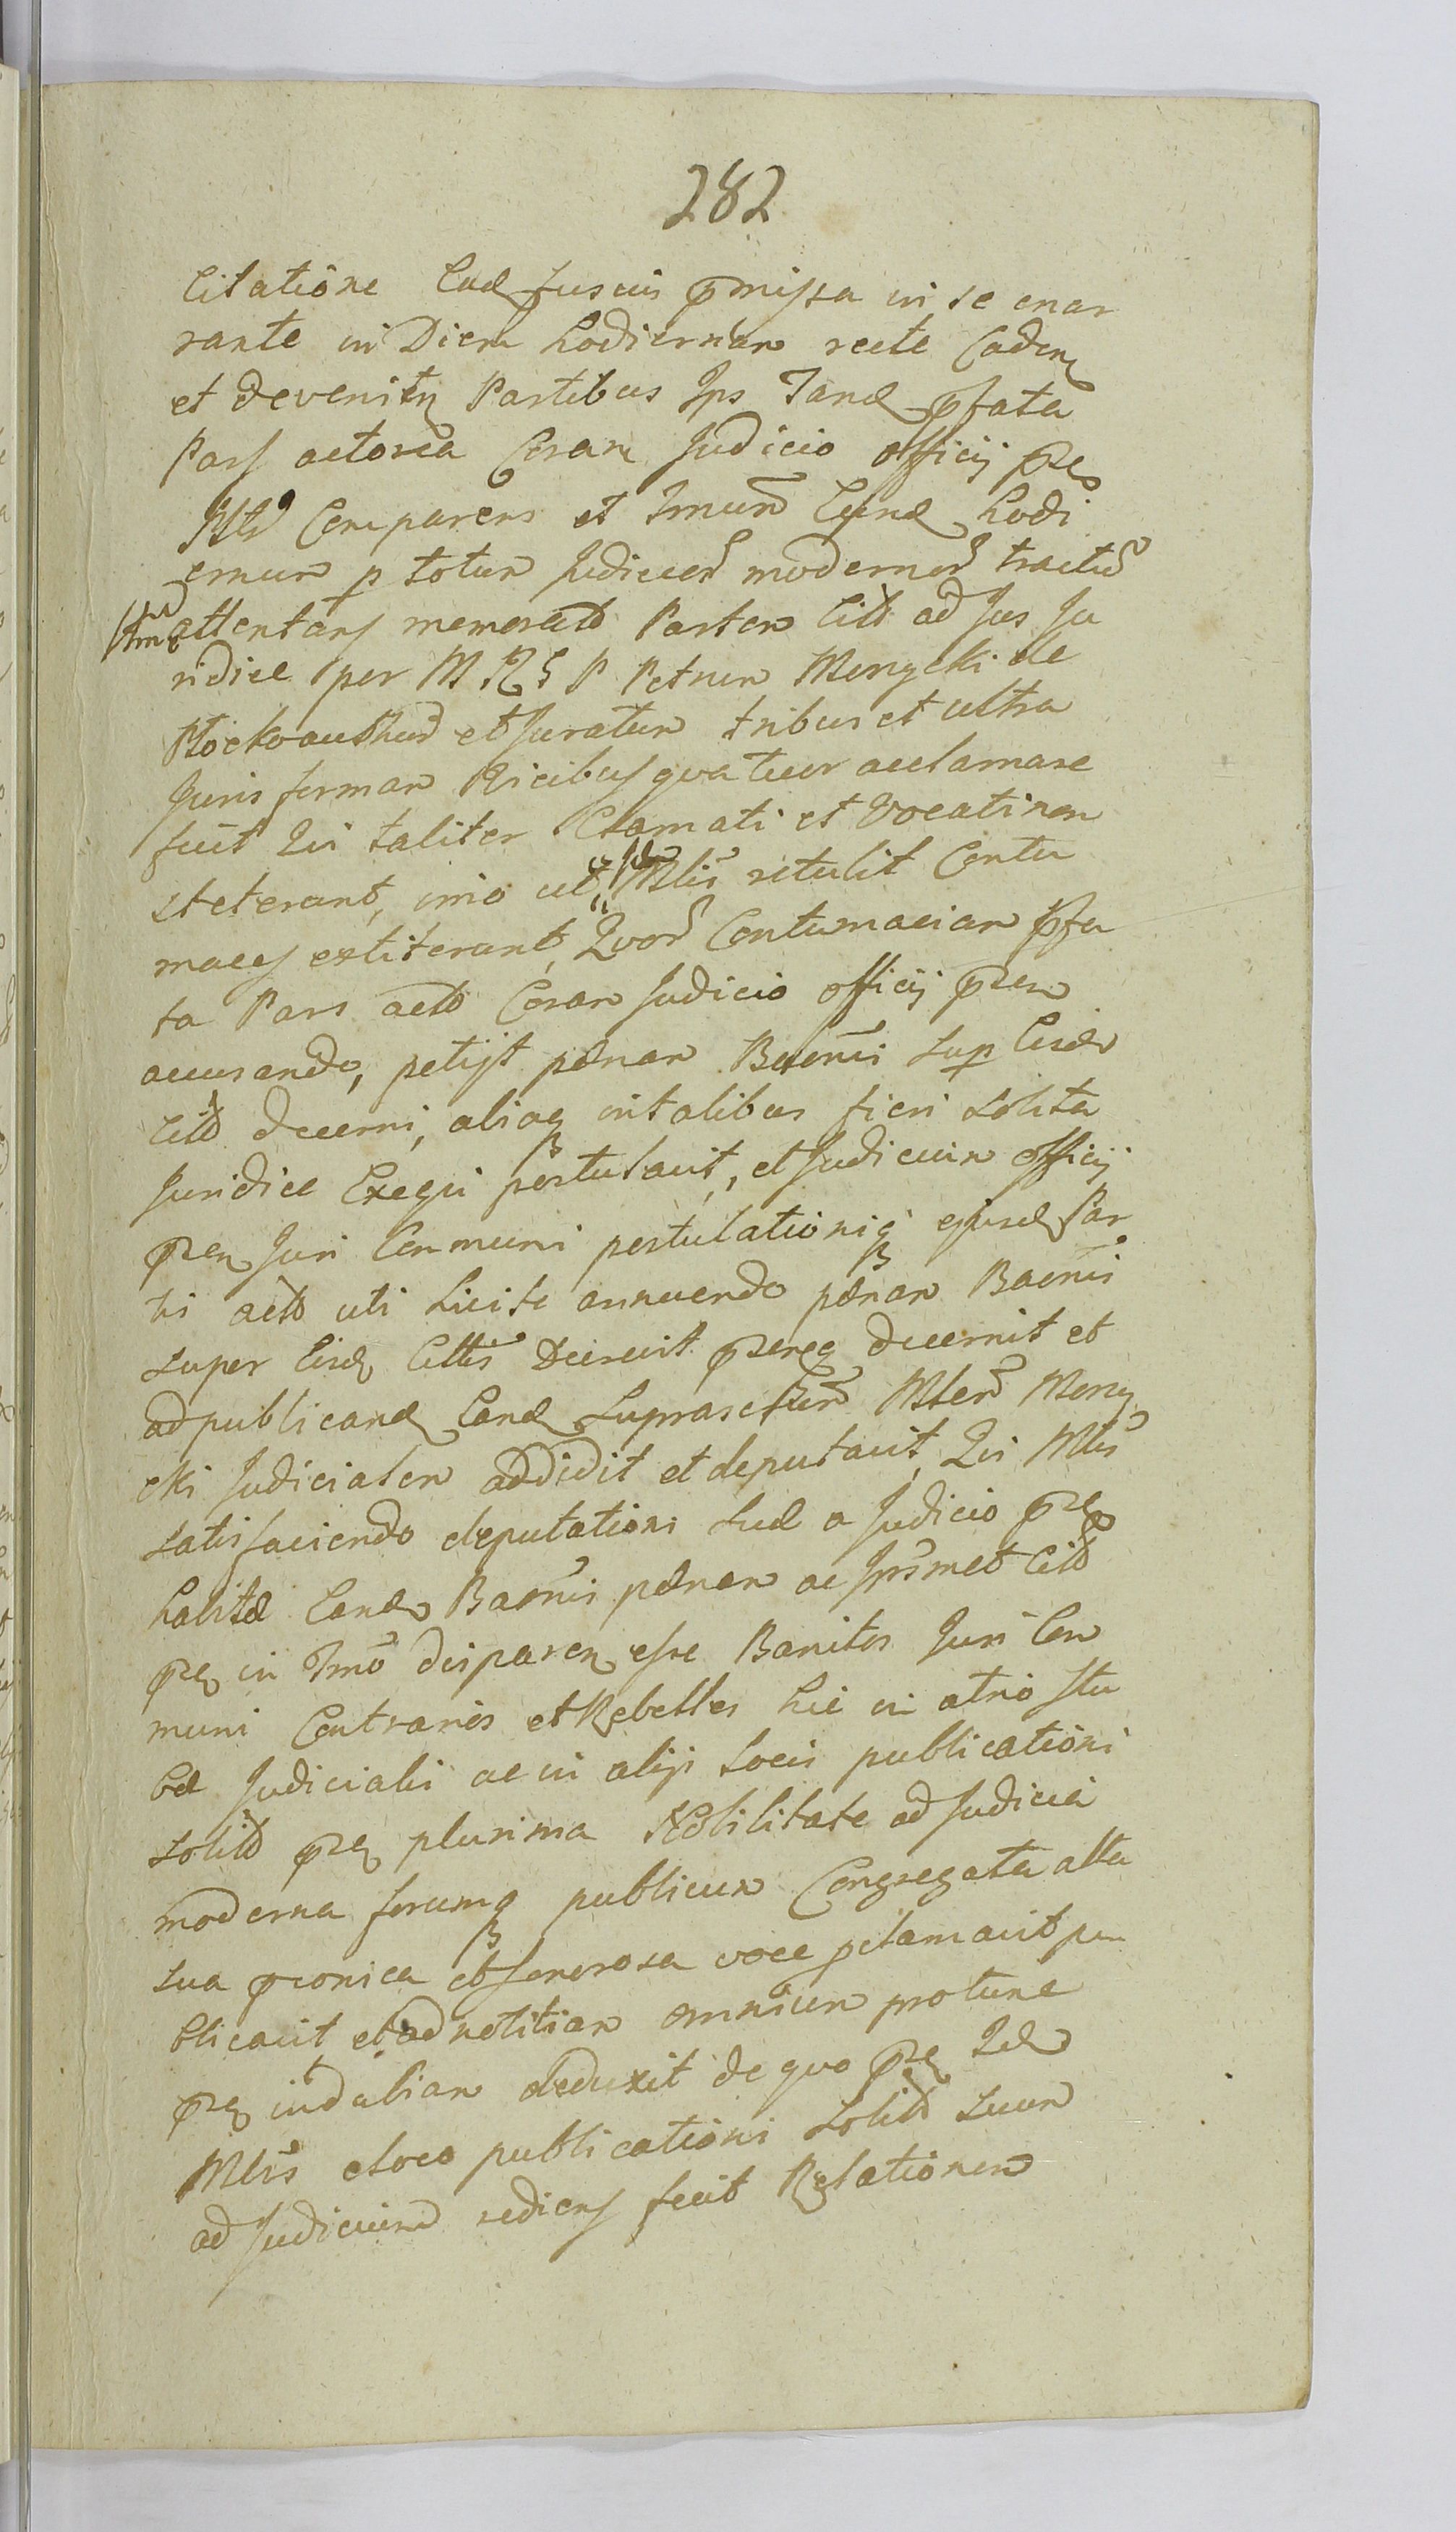 282
Citatione Ead fusius pmissa in se enar
rante in Diem hodiernam recte Caden
et devenien Partibus Ips Tand pfata
Pars actorea Coram Judicio officij pn
Mtr Comparens et Tmum Eund hodi
ernum p totum Judicior modernor tractu
attentans memorato Partem Citt ad Jus Ju
ridice per M R G P Petrum Menycki de
et Juratum tribus et ultra
Juris formam Vicibus quatuor acclamare
fecit Qui taliter Clamati et Vocati non
steterant, imo ut Mlis retulit Contu
maces extiterant, Quor Contumaciam pfa
ta Pars acto Coram Judicio officij pn
accusando, petijt pænam Baonis sup Eisd
Citt decerni, aliaq in talibus fieri solita
Juridice Exequi postulavit, et Judicium officij
pn Juri Communi postulationiq ejusd Par
tis acto uti Licite annuendo pænam Baonis
super Eisd Cittis Decrevit pnq decernit et
ad publicand Eand Suprascr Mlem Meny
cki Judicialem addidit et deputavit, Qui Mlis
satisfaciendo deputationi suæ a Judicio pn
habitæ Eand Baonis pænam ac Ipsmet Citt
pn in Tmo disparen esse Banitos Juri Com
muni Contrarios et Rebelles hic in atrio Stu
bæ Judicialis ac in alijs Locis publicationi
solit pn plurima Nobilitate ad Judicia
moderna forumq publicum Congregata alta
sua pconica et sonorosa voce pclamavit pu
blicavit, et ad notitiam omnium pro tunc
pn indubiam deduxit de quo pn Id
Mlis e loco publicationi Solit suam
ad Judicium rediens fecit Relationem